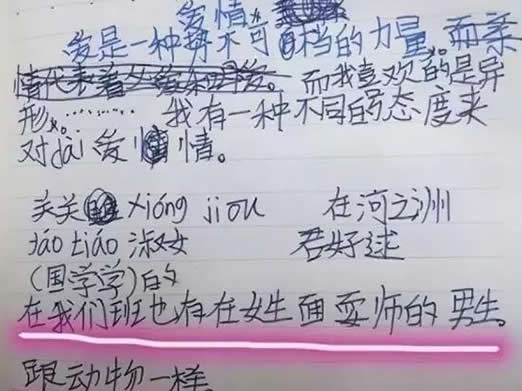 爱情。
爱是一种势不可档的力量。而亲
情代表着父爱和母爱。而我喜欢的是异
形。………我有一种不同的态度来
对dài爱情。
关关 xióng jiōu 在河之洲
táo tiáo 淑女 君好逑
(国学学)的
在我们班也存在女生面耍师的男生。
跟动物一样